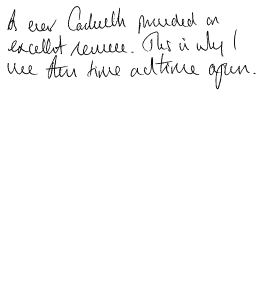 As ever Carlueth provided an
excellent service. This is why I
use them time and time again.